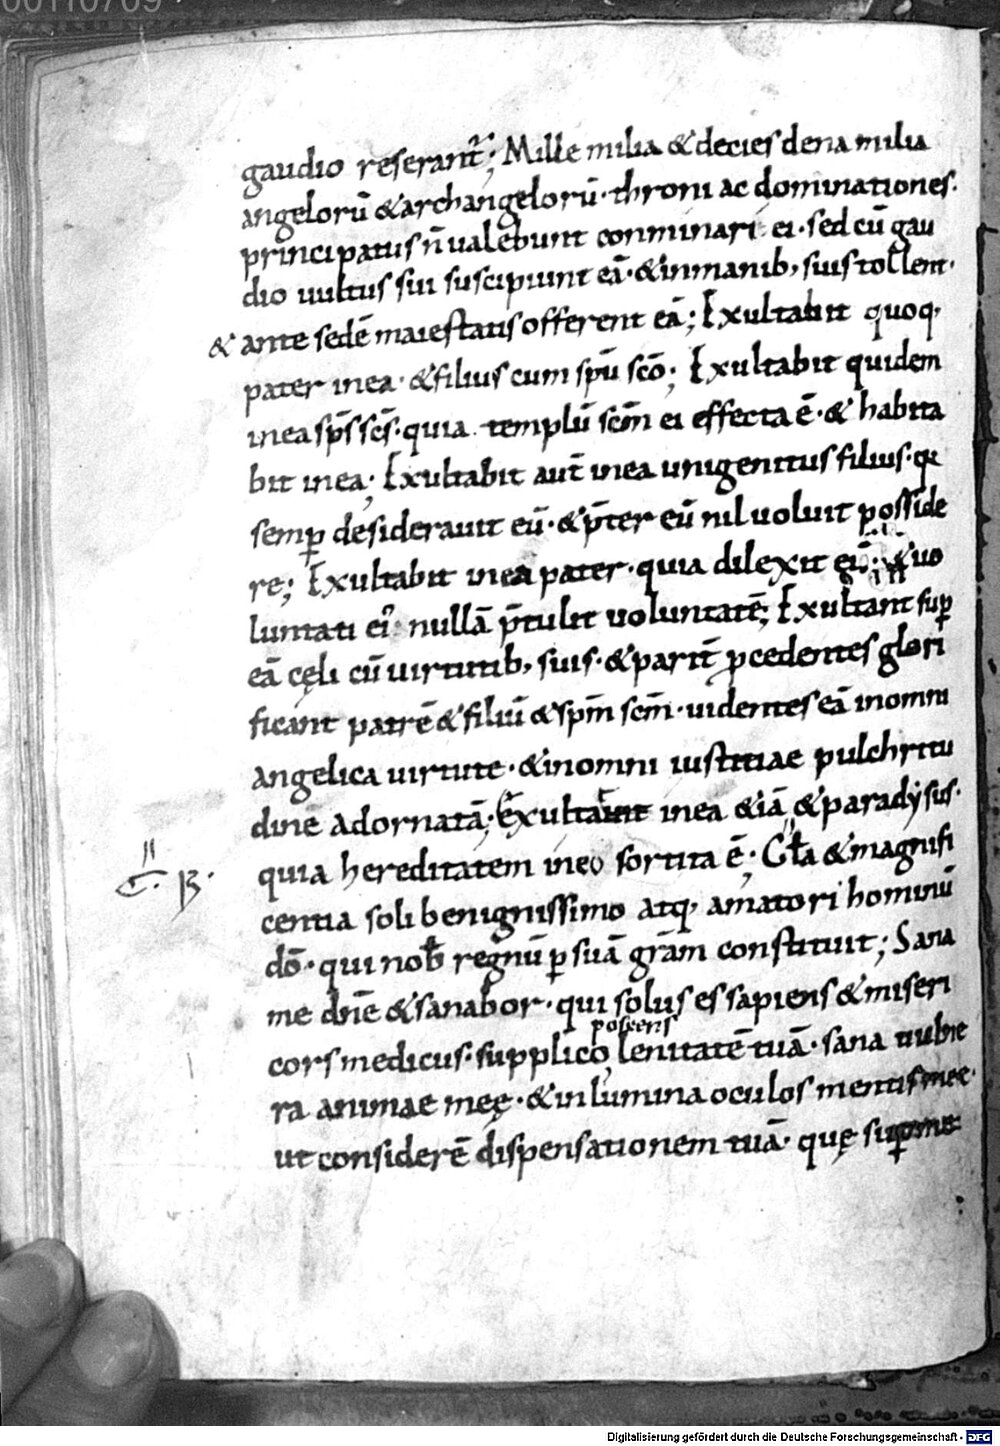 00110709
gaudio reserant̃; Mille milia & decies dena milia
angelorū & archangelorū· throni ac dominationes·
principatus n̄ ualebunt conminari ei· sed cū gau
dio uultus sui suscipiunt eā· & in manib; suis tollent·
& ante sedē maiestatis offerent eā; Exultabit quoq·
pater in ea· & filius cum spū scō; Exultabit quidem
in ea sp̄s sc̄s· quia templū sc̄m ei effecta ē· & habita
bit in ea; Exultabit aut̄ in ea unigenitus filius· qi
semꝑ desiderauit eū· & p̄ter eū nil uoluit posside
re; Exultabit in ea pater· quia dilexit eū; & uo
luntati ei' nullā p̄tulit uoluntatē; Exultant suꝑ
eā cęli cū uirtutib; suis· & parit̄ ꝓcedentes glori
ficant patrē & filiū & sp̄m sc̄m· uidentes eā in omni
angelica uirtute· & in omni iustitiae pulchritu
dine adornatā; Exultauit in ea & iā & paradysus·
quia hereditatem in eo sortita ē; Gła & magnifi
centia soli benignissimo atq· amatori hominū
dō· qui nob̄ regnū ꝑ suā grām constituit; Sana
me dn̄e & sanabor· qui solus es sapiens & miseri
cors medicus· supplico poscens lenitatē tuā· sana uulne
ra animae meę· & inlumina oculos mentis meę·
ut considerē dispensationem tuā· quę suꝑ me
Digitalisierung gefördert durch die Deutsche Forschungsgemeinschaft - DFG